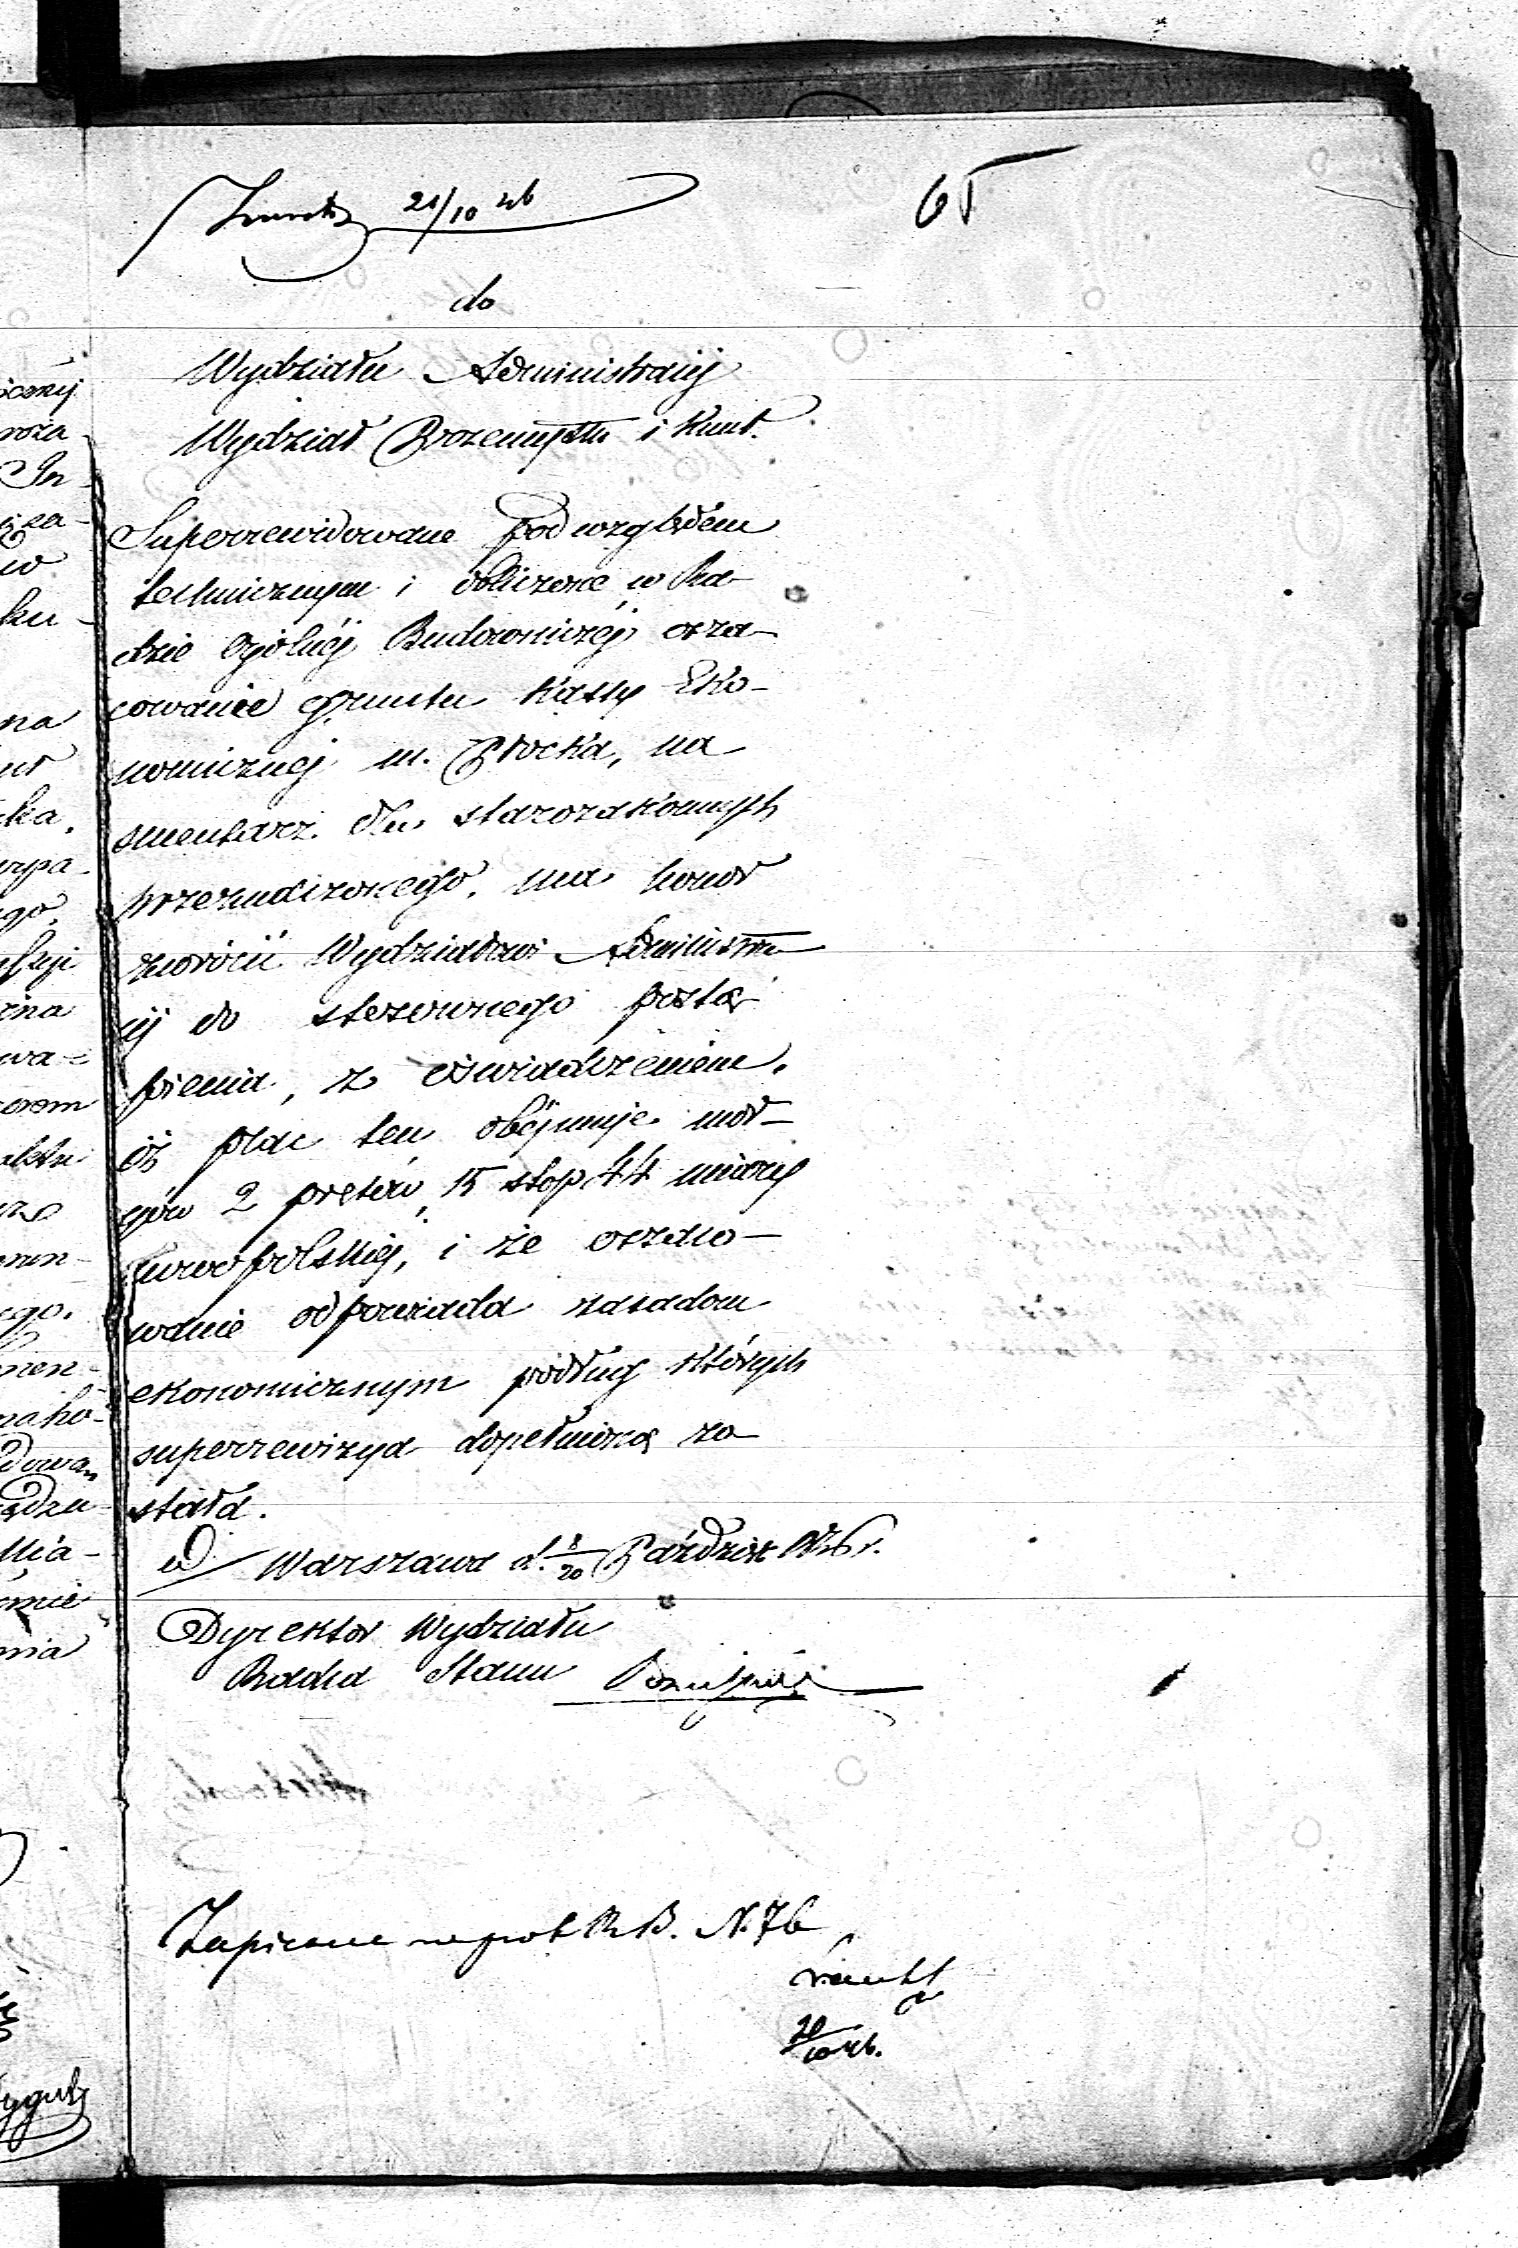 21/10 46
65
do
Wydziału Administracij
Wydział Przemysłu i Kunt.
Superrewidowane pod względem
technicznym i obliczone w Ra-
dzie Ogólnéj Budowniczéj osza-
cowanie gruntu Kassy Eko-
nomicznej m. Płocka, na
smentarz dla starozakonnych
przeznaczonego, ma honor
zwrócić Wydziałowi Administra
cij do stosownego postą-
pienia, z oświadczeniem,
iż plac ten obejmuje mor-
gów 2 prętów 15 stop 44 miary
nowopolskiéj, i że oszaco-
wanie odpowiada zasadom
ekonomicznym podług których
superrewizya dopełnioną zo-
stała.
w Warszawa d. 8/20 Paździer 1846 r.
Dyrektor Wydziału
Radca Stanu
Zapisane w prot R.B. N. 76
20/10 46.